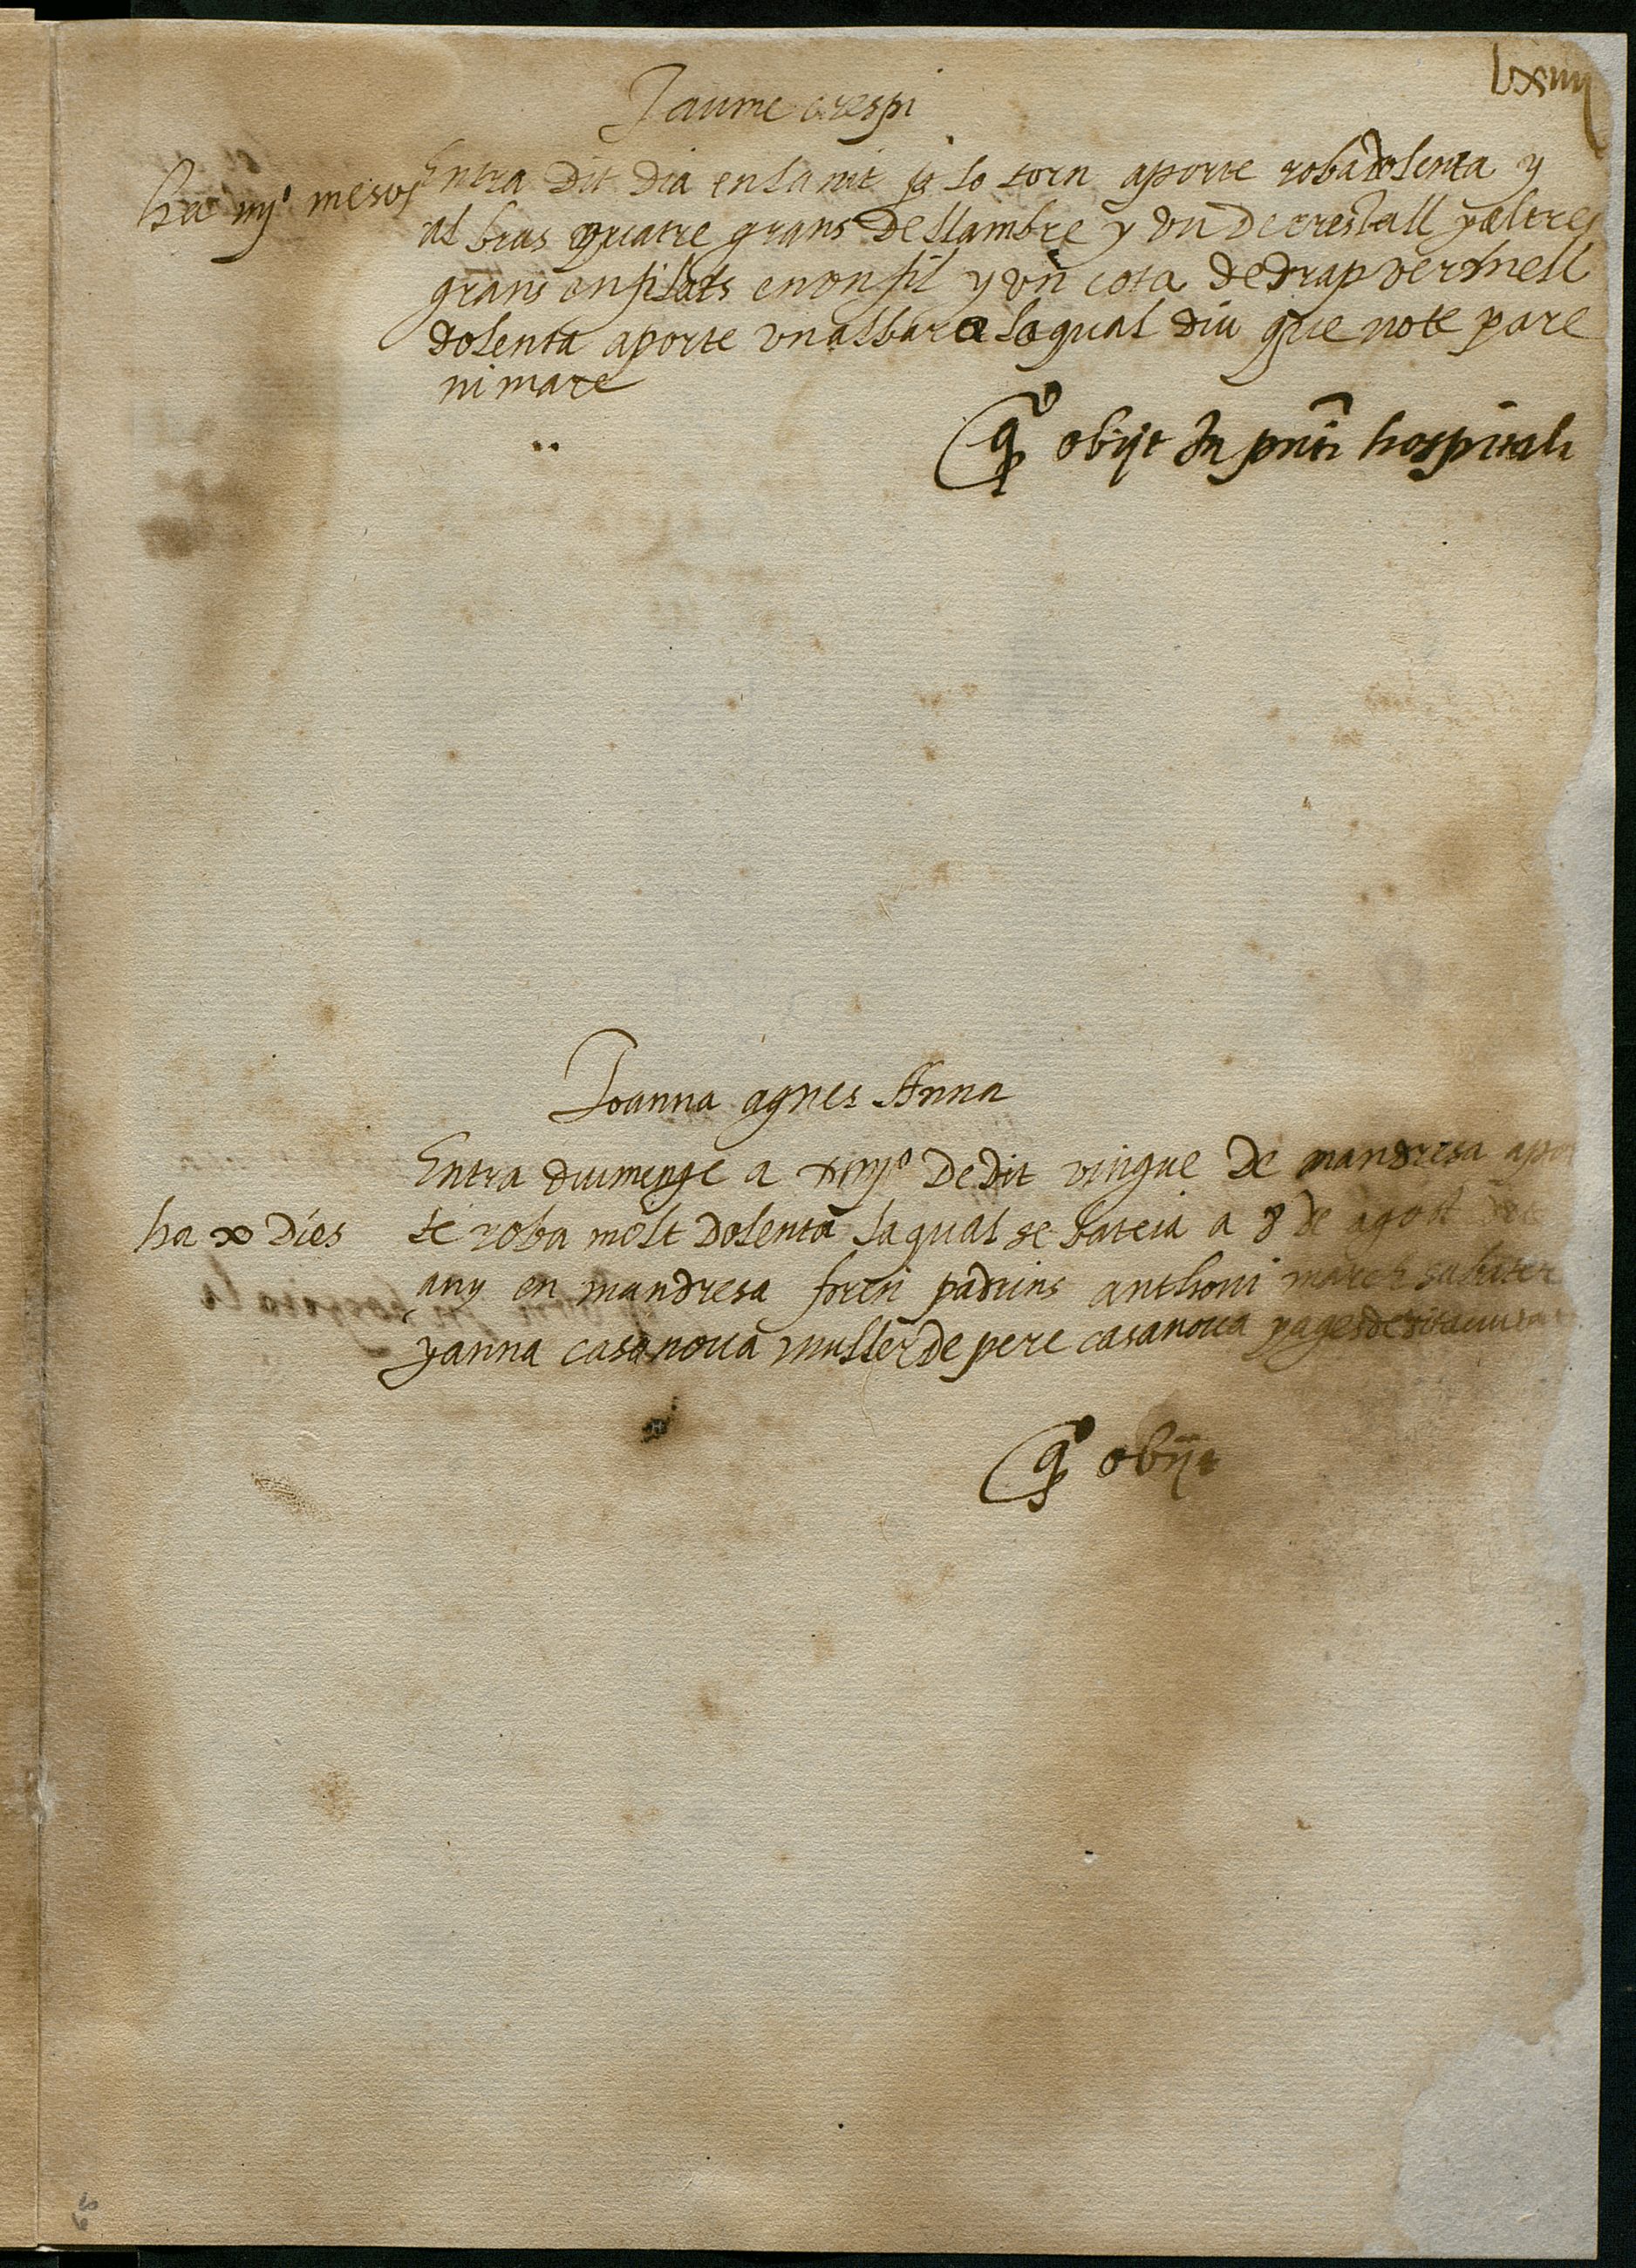 lxiiij
Jaume crespi
ha iiijº mesos
Entra dit dia en la nit p lo torn aporte roba dolenta y
al bras quatre grans de llambre y un de crestall y altres
grans enfilats en on fil y un cota de drap vermell
dolenta aporte un albara la qual diu que note pare
ni mare
qº obijt In pnti hospitali
Joanna agnes Anna
Entra diumenge a de dit vingue de mandresa apor
ha x dies
te roba molt dolenta la qual se bateia a 8 de agost
any en mandresa foren padrins anthoni march sabater
y anna casanova muller de pere casanova pages de
qº obijt